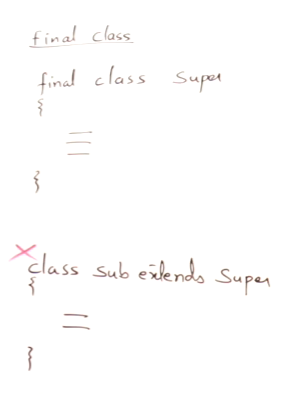 final class
final class Super
{
}
class sub extends Super
{
}